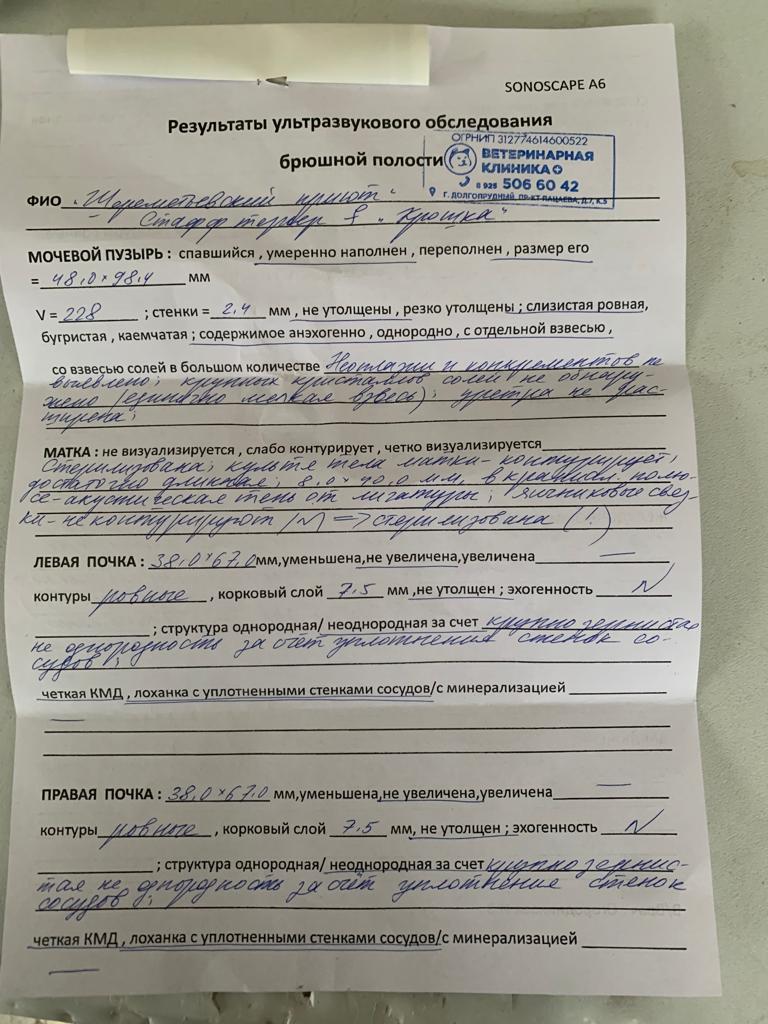 SONOSCAPE A6
Результаты ультразвукового обследования
брюшной полости
ОГРНИП 312774614600522
ВЕТЕРИНАРНАЯ
КЛИНИКА
8 925 506 60 42
Г. ДОЛГОПРУДНЫЙ, ПР-КТ ПАЦАЕВА, Д.7, К.5
ФИО "Шереметьевский приют"
Стафф терьер ♀ "Крошка"
МОЧЕВОЙ ПУЗЫРЬ : спавшийся , умеренно наполнен , переполнен , размер его
= 48,0 × 98,4 мм
V = 228 ; стенки = 2,4 мм , не утолщены , резко утолщены ; слизистая ровная,
бугристая , каемчатая ; содержимое анэхогенно , однородно , с отдельной взвесью ,
со взвесью солей в большом количестве Неоплазии и конкрементов не
выявлено; крупных кристаллов солей не обнару-
жено (единично мелкая взвесь); уретра не рас-
ширена;
МАТКА : не визуализируется , слабо контурирует , четко визуализируется
Стерилизована; культя тела матки - контурирует,
достаточно длинная; 8,0 × 40,0 мм, в краниал. полю-
се - акустическая тень от лигатуры; яичниковые связ-
ки - не контурируют /N/ => стерилизована (!)
ЛЕВАЯ ПОЧКА : 38,0 × 67,0 мм,уменьшена,не увеличена,увеличена —
контуры ровные , корковый слой 7.5 мм ,не утолщен ; эхогенность N
; структура однородная/ неоднородная за счет крупно зернистая
не однородность за счёт уплотнения стенок со-
судов;
четкая КМД , лоханка с уплотненными стенками сосудов/с минерализацией
—
ПРАВАЯ ПОЧКА : 38,0 × 67,0 мм,уменьшена,не увеличена,увеличена —
контуры ровные , корковый слой 7.5 мм, не утолщен ; эхогенность N
; структура однородная/ неоднородная за счет крупно зернис-
тая не однородность за счёт уплотнение стенок
сосудов;
четкая КМД , лоханка с уплотненными стенками сосудов/с минерализацией
—